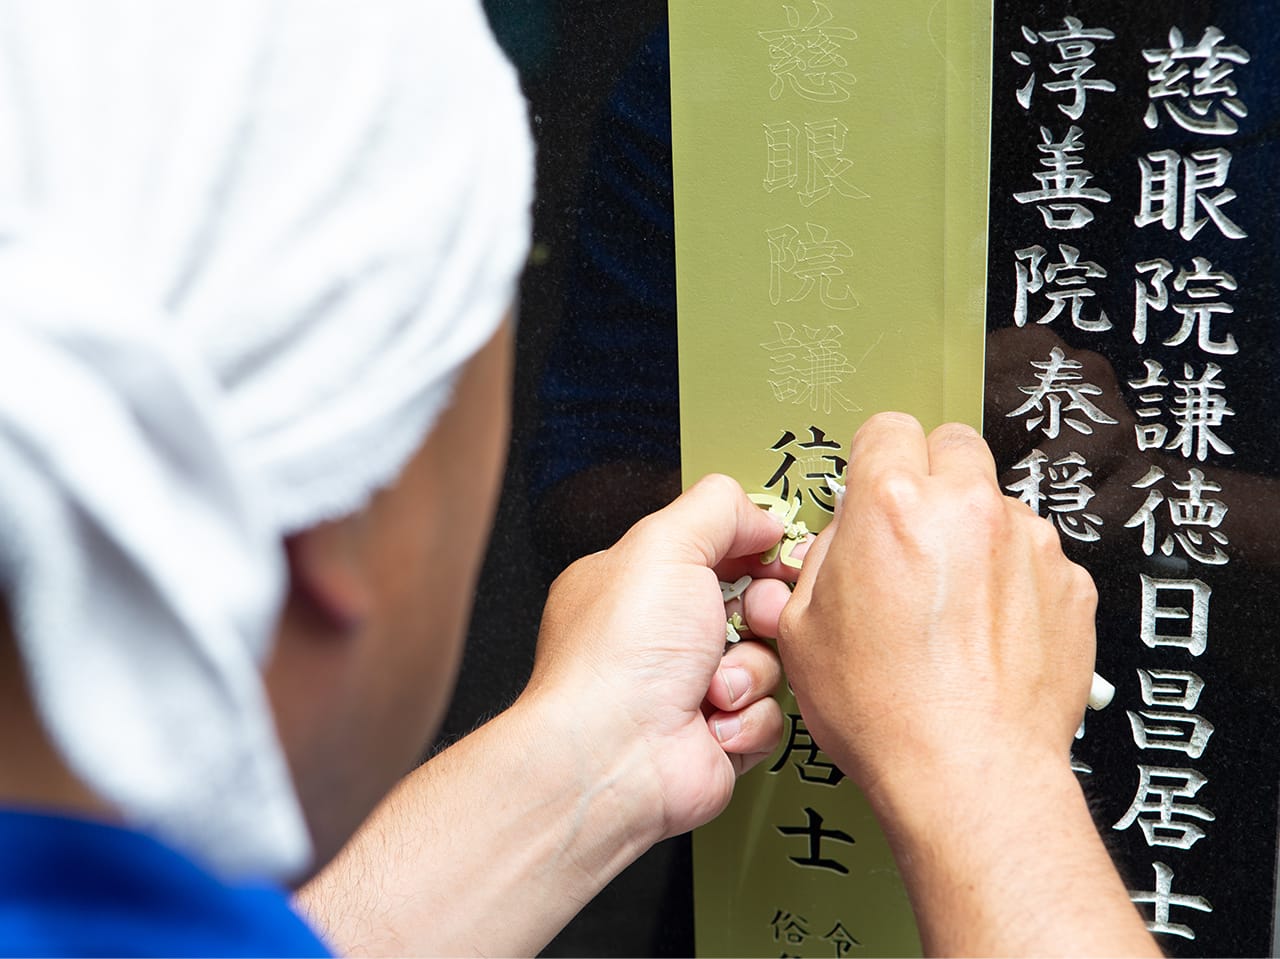 慈眼院謙徳日昌居士
淳善院泰穏
慈眼院謙徳
居士
令
俗